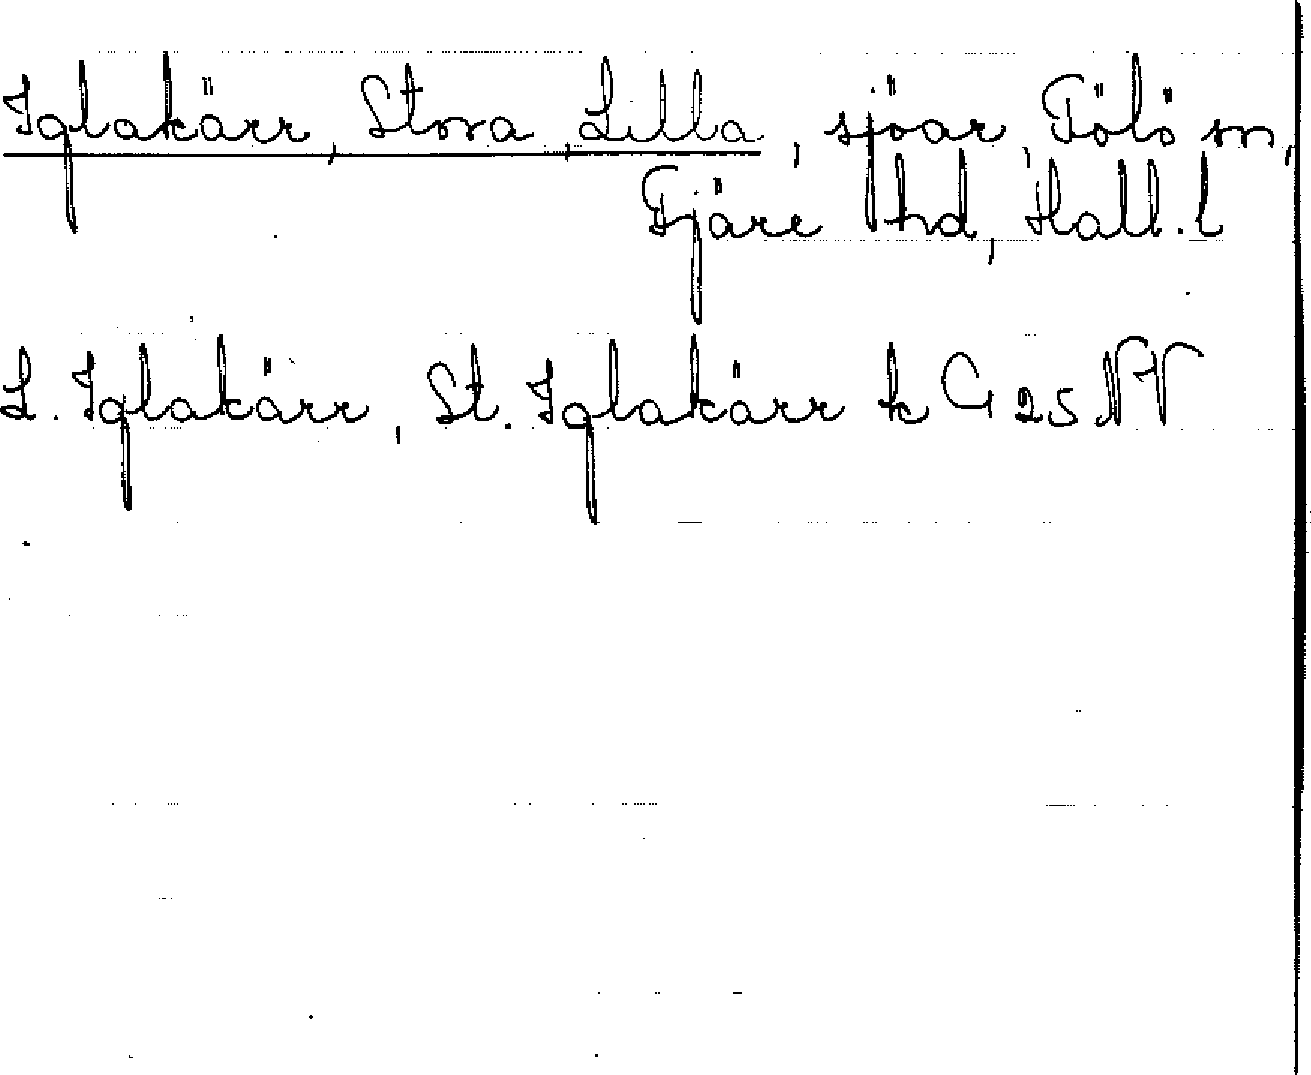 Iglakärr, Stora, Lilla, sjöar, Fölö sn,
Fjäre hd, Hall. l
L. Iglakärr, St. Iglakärr k G 25 NV